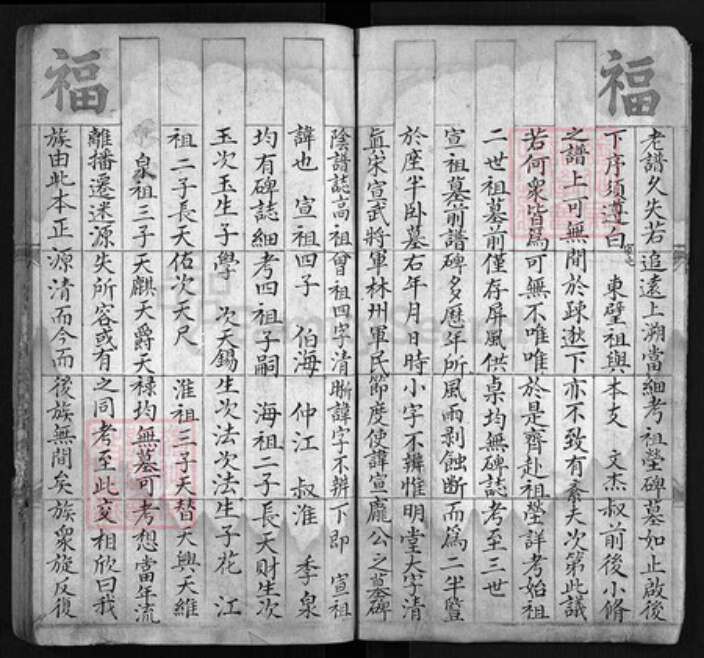 福
老譜久失若追遠上溯當細考祖塋碑墓如止啟後
下序須遵白 東壁祖與本支 文杰叔前後小脩
之譜上可無間於踈遨下亦不致有紊夫次第此議
若何衆皆爲可無不唯唯於是齊赴祖塋詳考始祖
二世祖墓前僅存屏風供桌均無碑誌考至三世
宣祖墓前譜碑多歷年所風雨剥蝕斷而爲二半豎
於座半卧墓右年月日時小字不辨惟明堂大字清
真宋宣武將軍林州軍民節度使諱宣龐公之墓碑
陰譜誌高祖曾祖四字清晰諱字不辨下即 宣祖
諱也 宣祖四子 伯海 仲江 叔淮 季泉
均有碑誌細考四祖子嗣 海祖二子長天財生次
玉次玉生子學 次天錫生次法次法生子花 江
祖二子長天佑次天尺 淮祖三子天替天與天維
泉祖三子天麒天爵天禄均無墓可考想當年流
離播遷迷源失所容或有之同考至此交相欣曰我
族由此本正源清而今而後族無間矣族衆旋反復
福